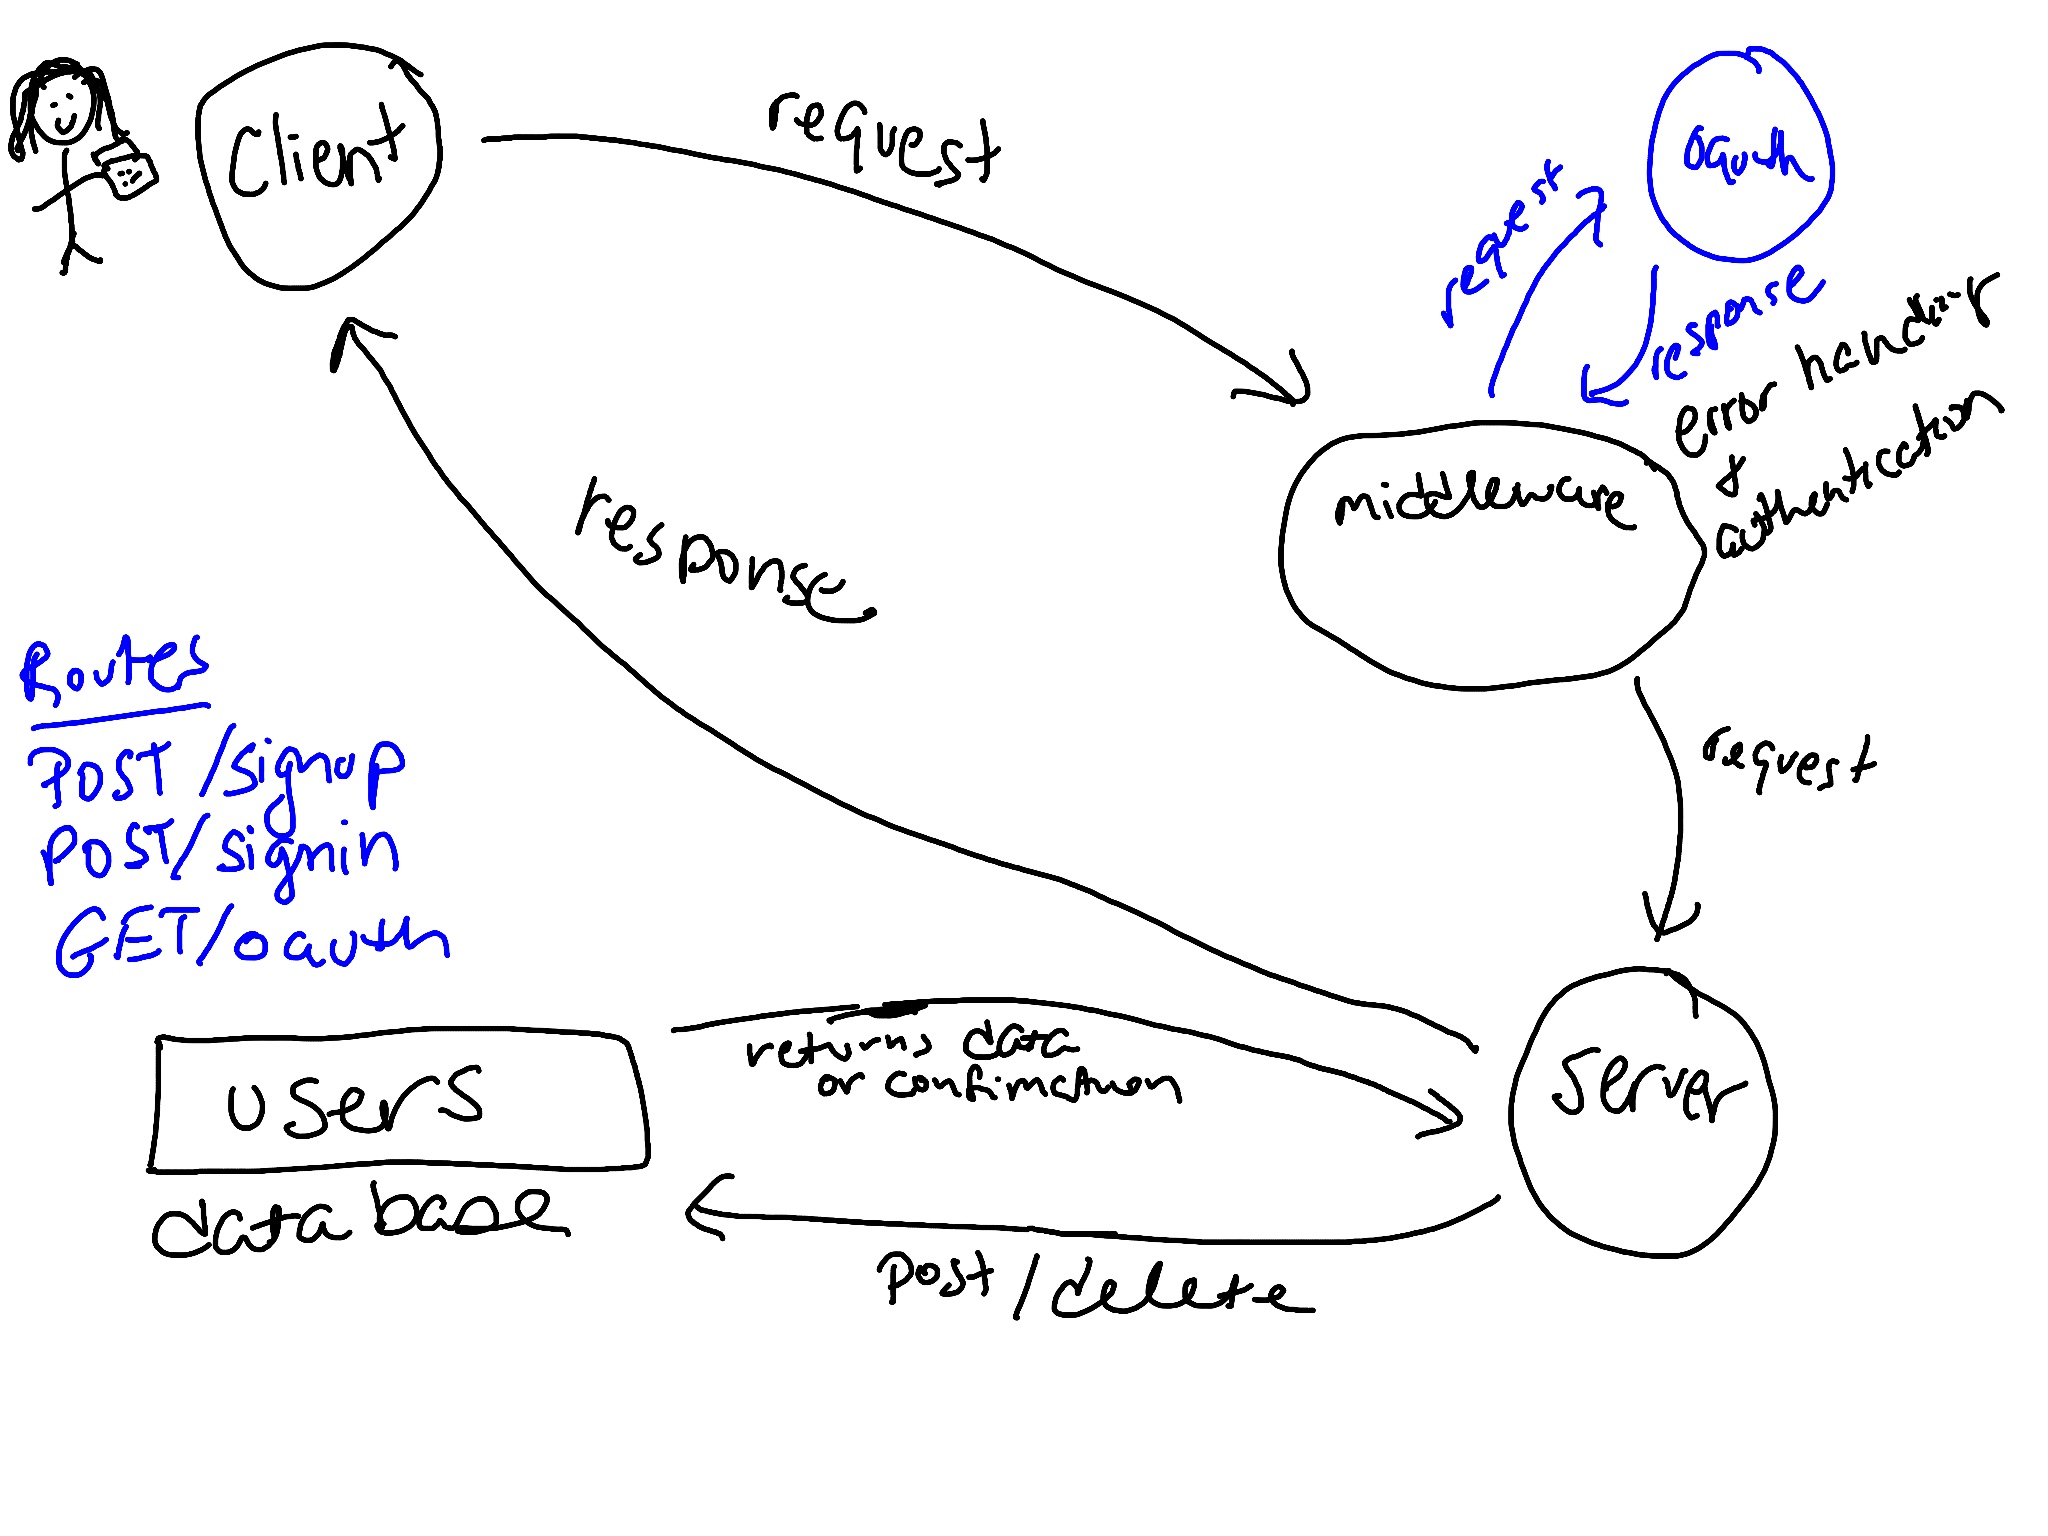 Client
request
oauth
request
response
error handling
&
authentication
middleware
response
request
Routes
POST /signup
POST /signin
GET /oauth
returns data
or confirmation
users
database
server
post/delete